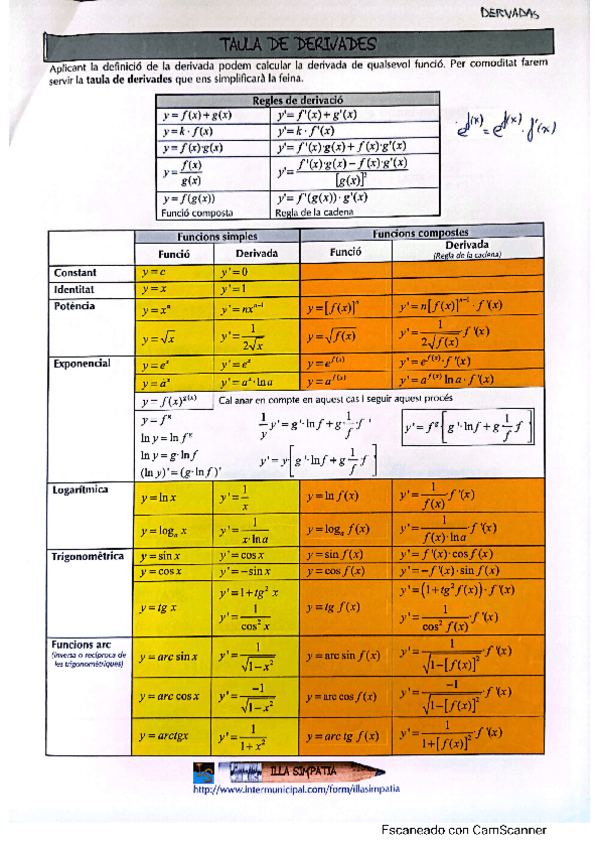 DERIVADAS
TAULA DE DERIVADES
Aplicant la definició de la derivada podem calcular la derivada de qualsevol funció. Per comoditat farem
servir la taula de derivades que ens simplificarà la feina.
Regles de derivació
y = f(x) + g(x) y' = f'(x) + g'(x)
y = k · f(x) y' = k · f'(x)
y = f(x)·g(x) y' = f'(x)·g(x) + f(x)·g'(x)
y = f(x)/g(x) y' = (f'(x)·g(x) − f(x)·g'(x))/[g(x)]²
y = f(g(x)) y' = f'(g(x)) · g'(x)
Funció composta Regla de la cadena
e^f(x) = e^f(x) · f'(x)
Funcions simples Funcions compostes
Funció Derivada Funció Derivada
(Regla de la cadena)
Constant y = c y' = 0
Identitat y = x y' = 1
Potència y = xⁿ y' = nxⁿ⁻¹ y = [f(x)]ⁿ y' = n[f(x)]ⁿ⁻¹ · f'(x)
y = √x y' = 1/(2√x) y = √f(x) y' = 1/(2√f(x)) · f'(x)
Exponencial y = eˣ y' = eˣ y = e^f(x) y' = e^f(x) · f'(x)
y = aˣ y' = aˣ · ln a y = a^f(x) y' = a^f(x) ln a · f'(x)
y = f(x)^g(x) Cal anar en compte en aquest cas i seguir aquest procés
y = f^g
ln y = ln f^g 1/y y' = g'·ln f + g·1/f·f' y' = f^g·[g'·ln f + g·1/f·f']
ln y = g·ln f
(ln y)' = (g·ln f)' y' = y·[g'·ln f + g·1/f·f']
Logarítmica y = ln x y' = 1/x y = ln f(x) y' = 1/f(x) · f'(x)
y = logₐ x y' = 1/(x·ln a) y = logₐ f(x) y' = 1/(f(x)·ln a) · f'(x)
Trigonomètrica y = sin x y' = cos x y = sin f(x) y' = f'(x)·cos f(x)
y = cos x y' = −sin x y = cos f(x) y' = −f'(x)·sin f(x)
y = tg x y' = 1 + tg² x y = tg f(x) y' = (1 + tg² f(x))·f'(x)
y' = 1/cos² x y' = 1/cos² f(x) · f'(x)
Funcions arc
(inversa o recíproca de
les trigonomètriques)
y = arc sin x y' = 1/√(1−x²) y = arc sin f(x) y' = 1/√(1−[f(x)]²) · f'(x)
y = arc cos x y' = −1/√(1−x²) y = arc cos f(x) y' = −1/√(1−[f(x)]²) · f'(x)
y = arctgx y' = 1/(1+x²) y = arc tg f(x) y' = 1/(1+[f(x)]²) · f'(x)
ILLA SIMPATIA
http://www.intermunicipal.com/form/illasimpatia
Escaneado con CamScanner